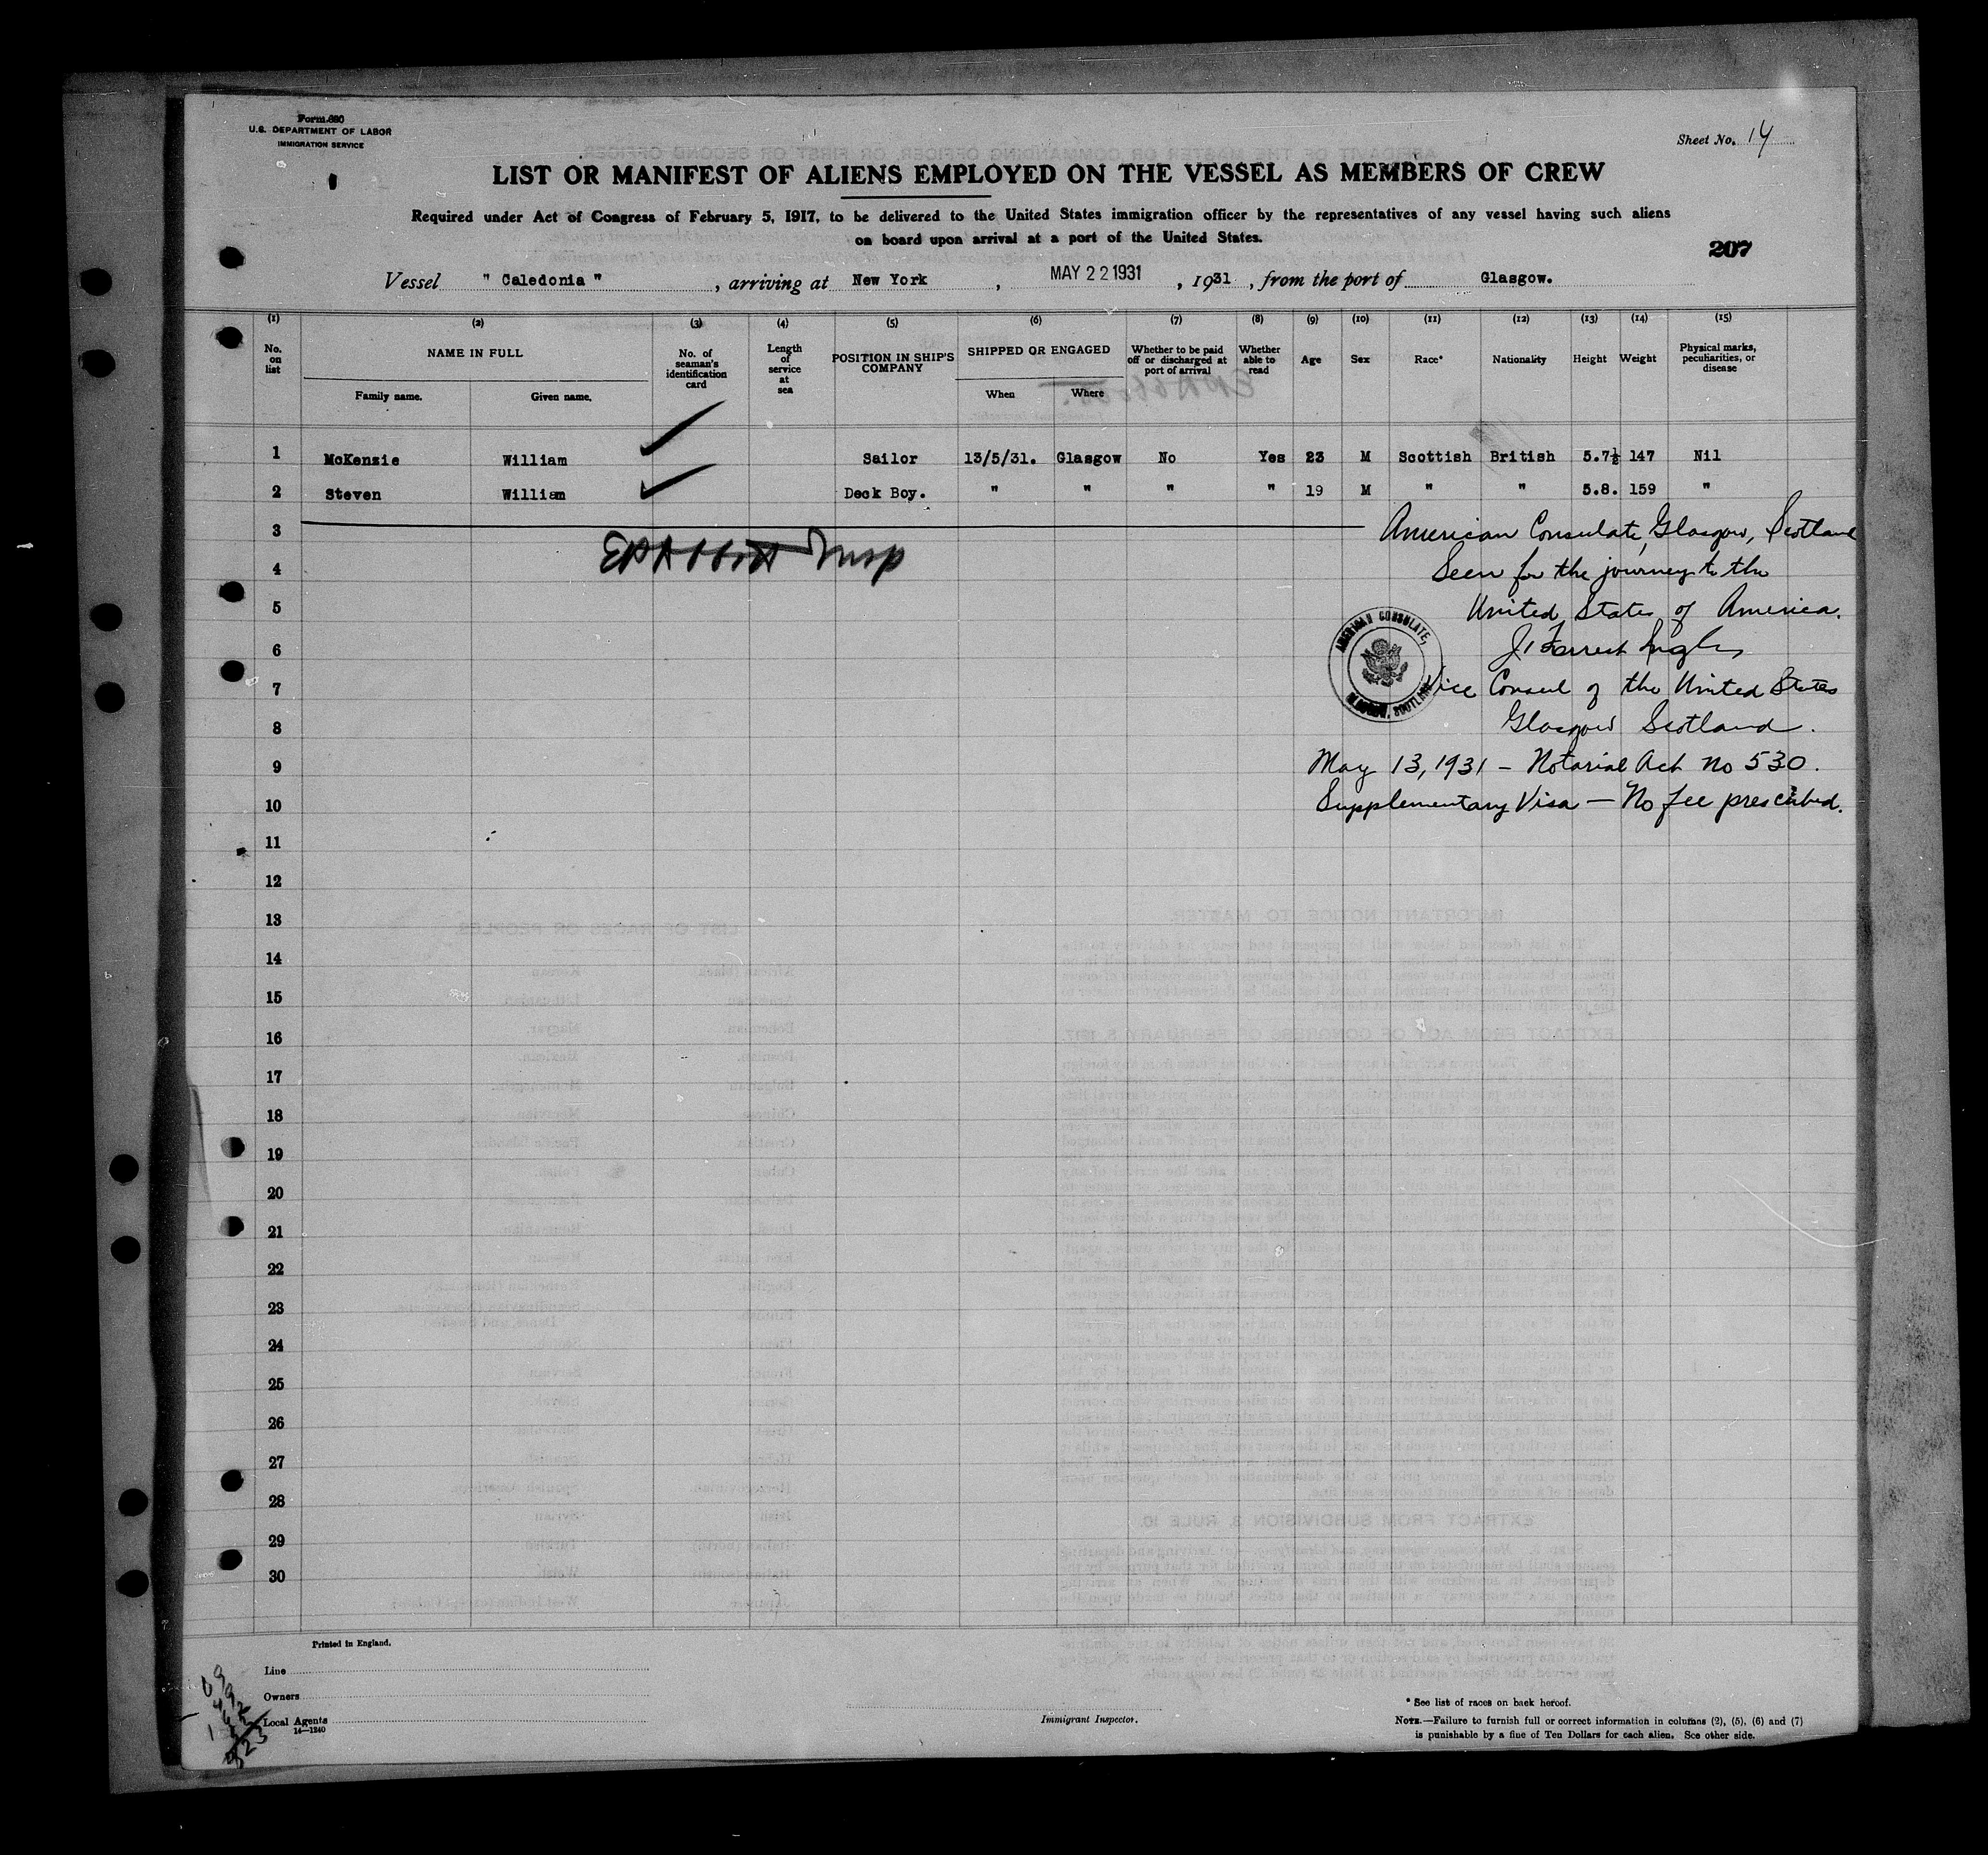 Form 680
U.S. DEPARTMENT OF LABOR
IMMIGRATION SERVICE
Sheet No. 14
LIST OR MANIFEST OF ALIENS EMPLOYED ON THE VESSEL AS MEMBERS OF CREW
Required under Act of Congress of February 5, 1917, to be delivered to the United States immigration officer by the representatives of any vessel having such aliens
on board upon arrival at a port of the United States.
207
Vessel " Caledonia " , arriving at New York , MAY 22 1931 , 1931 , from the port of Glasgow.
(1) (2) (3) (4) (5) (6) (7) (8) (9) (10) (11) (12) (13) (14) (15)
No. on list NAME IN FULL Family name. Given name. No. of seaman's identification card Length of service at sea POSITION IN SHIP'S COMPANY SHIPPED OR ENGAGED When Where Whether to be paid off or discharged at port of arrival Whether able to read Age Sex Race* Nationality Height Weight Physical marks, peculiarities, or disease
1 McKenzie William Sailor 13/5/31. Glasgow No Yes 23 M Scottish British 5.7½ 147 Nil
2 Steven William Deck Boy. " " " " 19 M " " 5.8. 159 "
3 American Consulate, Glasgow, Scotland
4 Seen for the journey to the
5 United States of America.
AMERICAN CONSULATE, GLASGOW, SCOTLAND
6 J. Forrest
7 Vice Consul of the United States
8 Glasgow Scotland.
9 May 13, 1931 – Notarial Act no 530.
10 Supplementary Visa – No fee prescribed.
11
12
13
14
15
16
17
18
19
20
21
22
23
24
25
26
27
28
29
30
Printed in England.
Line
Owners
Local Agents
14—1240
Immigrant Inspector.
* See list of races on back hereof.
NOTE.—Failure to furnish full or correct information in columns (2), (5), (6) and (7)
is punishable by a fine of Ten Dollars for each alien. See other side.